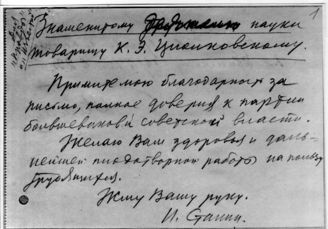 1
Знаменитому деятелю науки
товарищу К. Э. Циолковскому.
Примите мою благодарность за
письмо, полное доверия к партии
большевиков и советской власти.
Желаю Вам здоровья и даль-
нейшей плодотворной работы на пользу
трудящихся.
Жму Вашу руку.
И. Сталин.